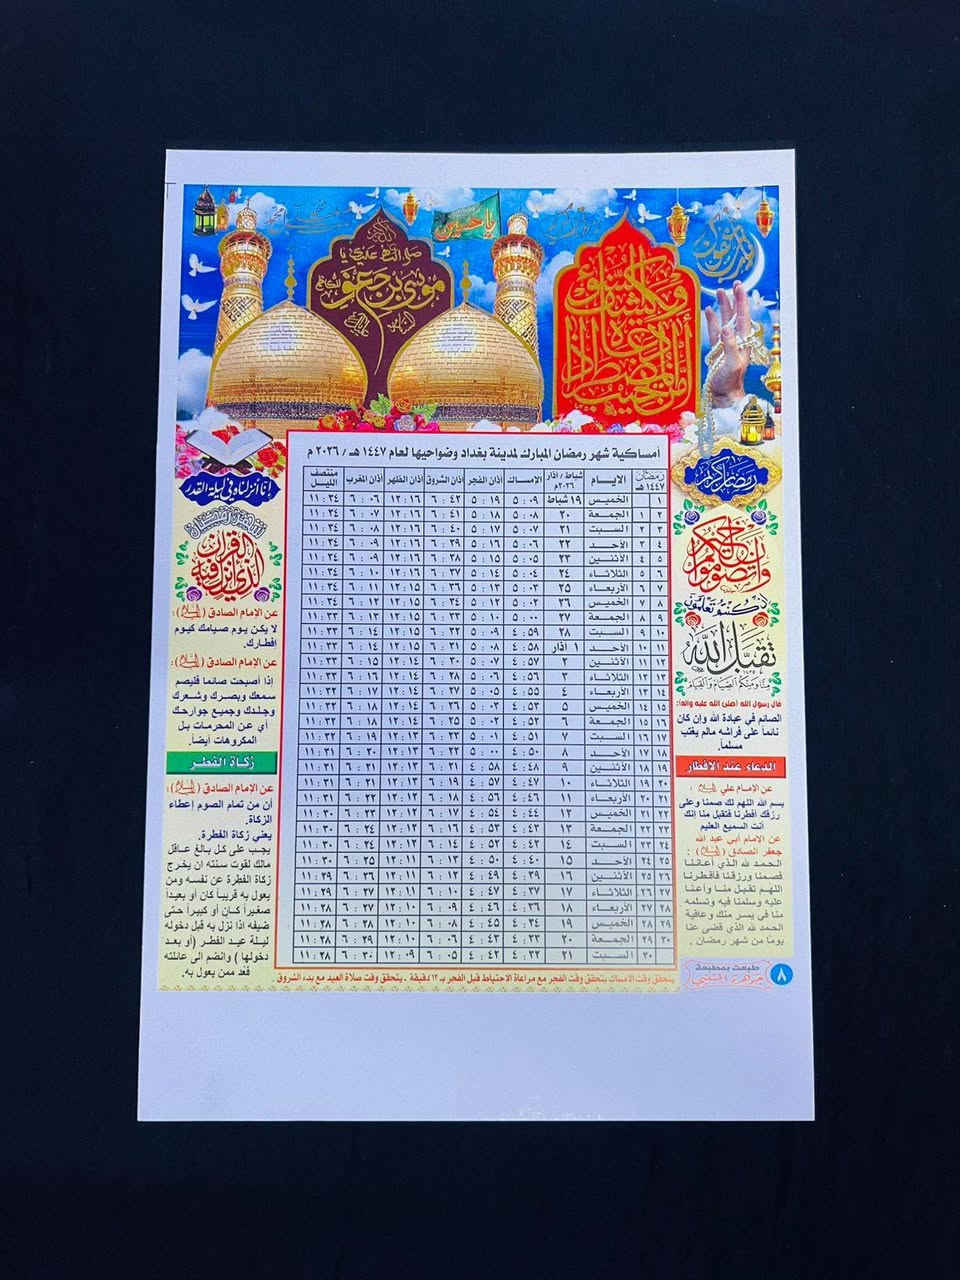 يا حسين
موسى بن جعفر
أمن يجيب المضطر إذا دعاه ويكشف السوء
أمساكية شهر رمضان المبارك لمدينة بغداد وضواحيها لعام ١٤٤٧ هـ / ٢٠٢٦ م
رمضان ١٤٤٧ هـ الايام شباط / أذار ٢٠٢٦م الامساك أذان الفجر أذان الشروق أذان الظهر أذان المغرب منتصف الليل
١ الخميس ١٩ شباط ٥ : ٠٩ ٥ : ١٩ ٦ : ٤٢ ١٢ : ١٦ ٦ : ٠٦ ١١ : ٣٤
٢ ١ الجمعة ٢٠ ٥ : ٠٨ ٥ : ١٨ ٦ : ٤١ ١٢ : ١٦ ٦ : ٠٧ ١١ : ٣٤
٣ ٢ السبت ٢١ ٥ : ٠٧ ٥ : ١٧ ٦ : ٤٠ ١٢ : ١٦ ٦ : ٠٨ ١١ : ٣٤
٤ ٣ الأحد ٢٢ ٥ : ٠٦ ٥ : ١٦ ٦ : ٣٩ ١٢ : ١٦ ٦ : ٠٩ ١١ : ٣٤
٥ ٤ الأثنين ٢٣ ٥ : ٠٥ ٥ : ١٥ ٦ : ٣٨ ١٢ : ١٦ ٦ : ٠٩ ١١ : ٣٤
٦ ٥ الثلاثاء ٢٤ ٥ : ٠٤ ٥ : ١٤ ٦ : ٣٧ ١٢ : ١٦ ٦ : ١٠ ١١ : ٣٤
٧ ٦ الأربعاء ٢٥ ٥ : ٠٣ ٥ : ١٣ ٦ : ٣٦ ١٢ : ١٥ ٦ : ١١ ١١ : ٣٣
٨ ٧ الخميس ٢٦ ٥ : ٠٢ ٥ : ١٢ ٦ : ٣٤ ١٢ : ١٥ ٦ : ١٢ ١١ : ٣٣
٩ ٨ الجمعة ٢٧ ٥ : ٠٠ ٥ : ١٠ ٦ : ٣٣ ١٢ : ١٥ ٦ : ١٣ ١١ : ٣٣
١٠ ٩ السبت ٢٨ ٤ : ٥٩ ٥ : ٠٩ ٦ : ٣٢ ١٢ : ١٥ ٦ : ١٤ ١١ : ٣٣
١١ ١٠ الأحد ١ أذار ٤ : ٥٨ ٥ : ٠٨ ٦ : ٣١ ١٢ : ١٥ ٦ : ١٤ ١١ : ٣٣
١٢ ١١ الأثنين ٢ ٤ : ٥٧ ٥ : ٠٧ ٦ : ٣٠ ١٢ : ١٤ ٦ : ١٥ ١١ : ٣٣
١٣ ١٢ الثلاثاء ٣ ٤ : ٥٦ ٥ : ٠٦ ٦ : ٢٨ ١٢ : ١٤ ٦ : ١٦ ١١ : ٣٢
١٤ ١٣ الأربعاء ٤ ٤ : ٥٥ ٥ : ٠٥ ٦ : ٢٧ ١٢ : ١٤ ٦ : ١٧ ١١ : ٣٢
١٥ ١٤ الخميس ٥ ٤ : ٥٣ ٥ : ٠٣ ٦ : ٢٦ ١٢ : ١٤ ٦ : ١٨ ١١ : ٣٢
١٦ ١٥ الجمعة ٦ ٤ : ٥٢ ٥ : ٠٢ ٦ : ٢٥ ١٢ : ١٤ ٦ : ١٨ ١١ : ٣٢
١٧ ١٦ السبت ٧ ٤ : ٥١ ٥ : ٠١ ٦ : ٢٣ ١٢ : ١٣ ٦ : ١٩ ١١ : ٣٢
١٨ ١٧ الأحد ٨ ٤ : ٥٠ ٥ : ٠٠ ٦ : ٢٢ ١٢ : ١٣ ٦ : ٢٠ ١١ : ٣١
١٩ ١٨ الأثنين ٩ ٤ : ٤٨ ٤ : ٥٨ ٦ : ٢١ ١٢ : ١٣ ٦ : ٢١ ١١ : ٣١
٢٠ ١٩ الثلاثاء ١٠ ٤ : ٤٧ ٤ : ٥٧ ٦ : ١٩ ١٢ : ١٣ ٦ : ٢١ ١١ : ٣١
٢١ ٢٠ الأربعاء ١١ ٤ : ٤٦ ٤ : ٥٦ ٦ : ١٨ ١٢ : ١٢ ٦ : ٢٢ ١١ : ٣١
٢٢ ٢١ الخميس ١٢ ٤ : ٤٤ ٤ : ٥٤ ٦ : ١٧ ١٢ : ١٢ ٦ : ٢٣ ١١ : ٣٠
٢٣ ٢٢ الجمعة ١٣ ٤ : ٤٣ ٤ : ٥٣ ٦ : ١٦ ١٢ : ١٢ ٦ : ٢٤ ١١ : ٣٠
٢٤ ٢٣ السبت ١٤ ٤ : ٤٢ ٤ : ٥٢ ٦ : ١٤ ١٢ : ١٢ ٦ : ٢٤ ١١ : ٣٠
٢٥ ٢٤ الأحد ١٥ ٤ : ٤٠ ٤ : ٥٠ ٦ : ١٣ ١٢ : ١١ ٦ : ٢٥ ١١ : ٣٠
٢٦ ٢٥ الأثنين ١٦ ٤ : ٣٩ ٤ : ٤٩ ٦ : ١٢ ١٢ : ١١ ٦ : ٢٦ ١١ : ٢٩
٢٧ ٢٦ الثلاثاء ١٧ ٤ : ٣٧ ٤ : ٤٧ ٦ : ١٠ ١٢ : ١١ ٦ : ٢٧ ١١ : ٢٩
٢٨ ٢٧ الأربعاء ١٨ ٤ : ٣٦ ٤ : ٤٦ ٦ : ٠٩ ١٢ : ١٠ ٦ : ٢٧ ١١ : ٢٨
٢٩ ٢٨ الخميس ١٩ ٤ : ٣٤ ٤ : ٤٥ ٦ : ٠٨ ١٢ : ١٠ ٦ : ٢٨ ١١ : ٢٨
٣٠ ٢٩ الجمعة ٢٠ ٤ : ٣٣ ٤ : ٤٣ ٦ : ٠٦ ١٢ : ١٠ ٦ : ٢٩ ١١ : ٢٨
٣٠ السبت ٢١ ٤ : ٣٢ ٤ : ٤٢ ٦ : ٠٥ ١٢ : ٠٩ ٦ : ٣٠ ١١ : ٢٨
يتحقق وقت الامساك بتحقق وقت الفجر مع مراعاة الاحتياط قبل الفجر بـ ١٢ دقيقة . يتحقق وقت صلاة العيد مع بدء الشروق .
رمضان كريم
وأن تصوموا خير لكم
إن كنتم تعلمون
تقبل الله
منا ومنكم الصيام والقيام
قال رسول الله (صلى الله عليه واله):
الصائم في عبادة الله وإن كان
نائماً على فراشه مالم يغتب
مسلماً.
الدعاء عند الافطار
عن الإمام علي (عليه السلام) :
بسم الله اللهم لك صمنا وعلى
رزقك أفطرنا فتقبل منا إنك
أنت السميع العليم
عن الإمام أبي عبد الله
جعفر الصادق (عليه السلام) :
الحمد لله الذي أعاننا
فصمنا ورزقنا فأفطرنا
اللهم تقبل منا وأعنا
عليه وسلمنا فيه وتسلمه
منا في يسر منك وعافية
الحمد لله الذي قضى عنا
يوماً من شهر رمضان .
طبعت بمطبعة
٨
إنا أنزلناه في ليلة القدر
شهر رمضان
الذي أنزل فيه القرآن
عن الإمام الصادق (عليه السلام):
لا يكن يوم صيامك كيوم
إفطارك.
عن الإمام الصادق (عليه السلام):
إذا أصبحت صائما فليصم
سمعك وبصرك وشعرك
وجلدك وجميع جوارحك
أي عن المحرمات بل
المكروهات أيضاً.
زكاة الفطر
عن الإمام الصادق (عليه السلام):
أن من تمام الصوم إعطاء
الزكاة.
يعني زكاة الفطرة.
يجب على كل بالغ عاقل
مالك لقوت سنته ان يخرج
زكاة الفطرة عن نفسه ومن
يعول به قريباً كان أو بعيدا
صغيراً كان أو كبيراً حتى
ضيفه اذا نزل به قبل دخوله
ليلة عيد الفطر (أو بعد
دخولها ) وانضم الى عائلته
فعُد ممن يعول به.